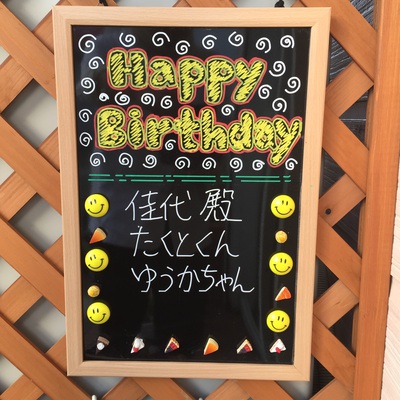 Happy
Birthday
佳代 殿
たくとくん
ゆうかちゃん